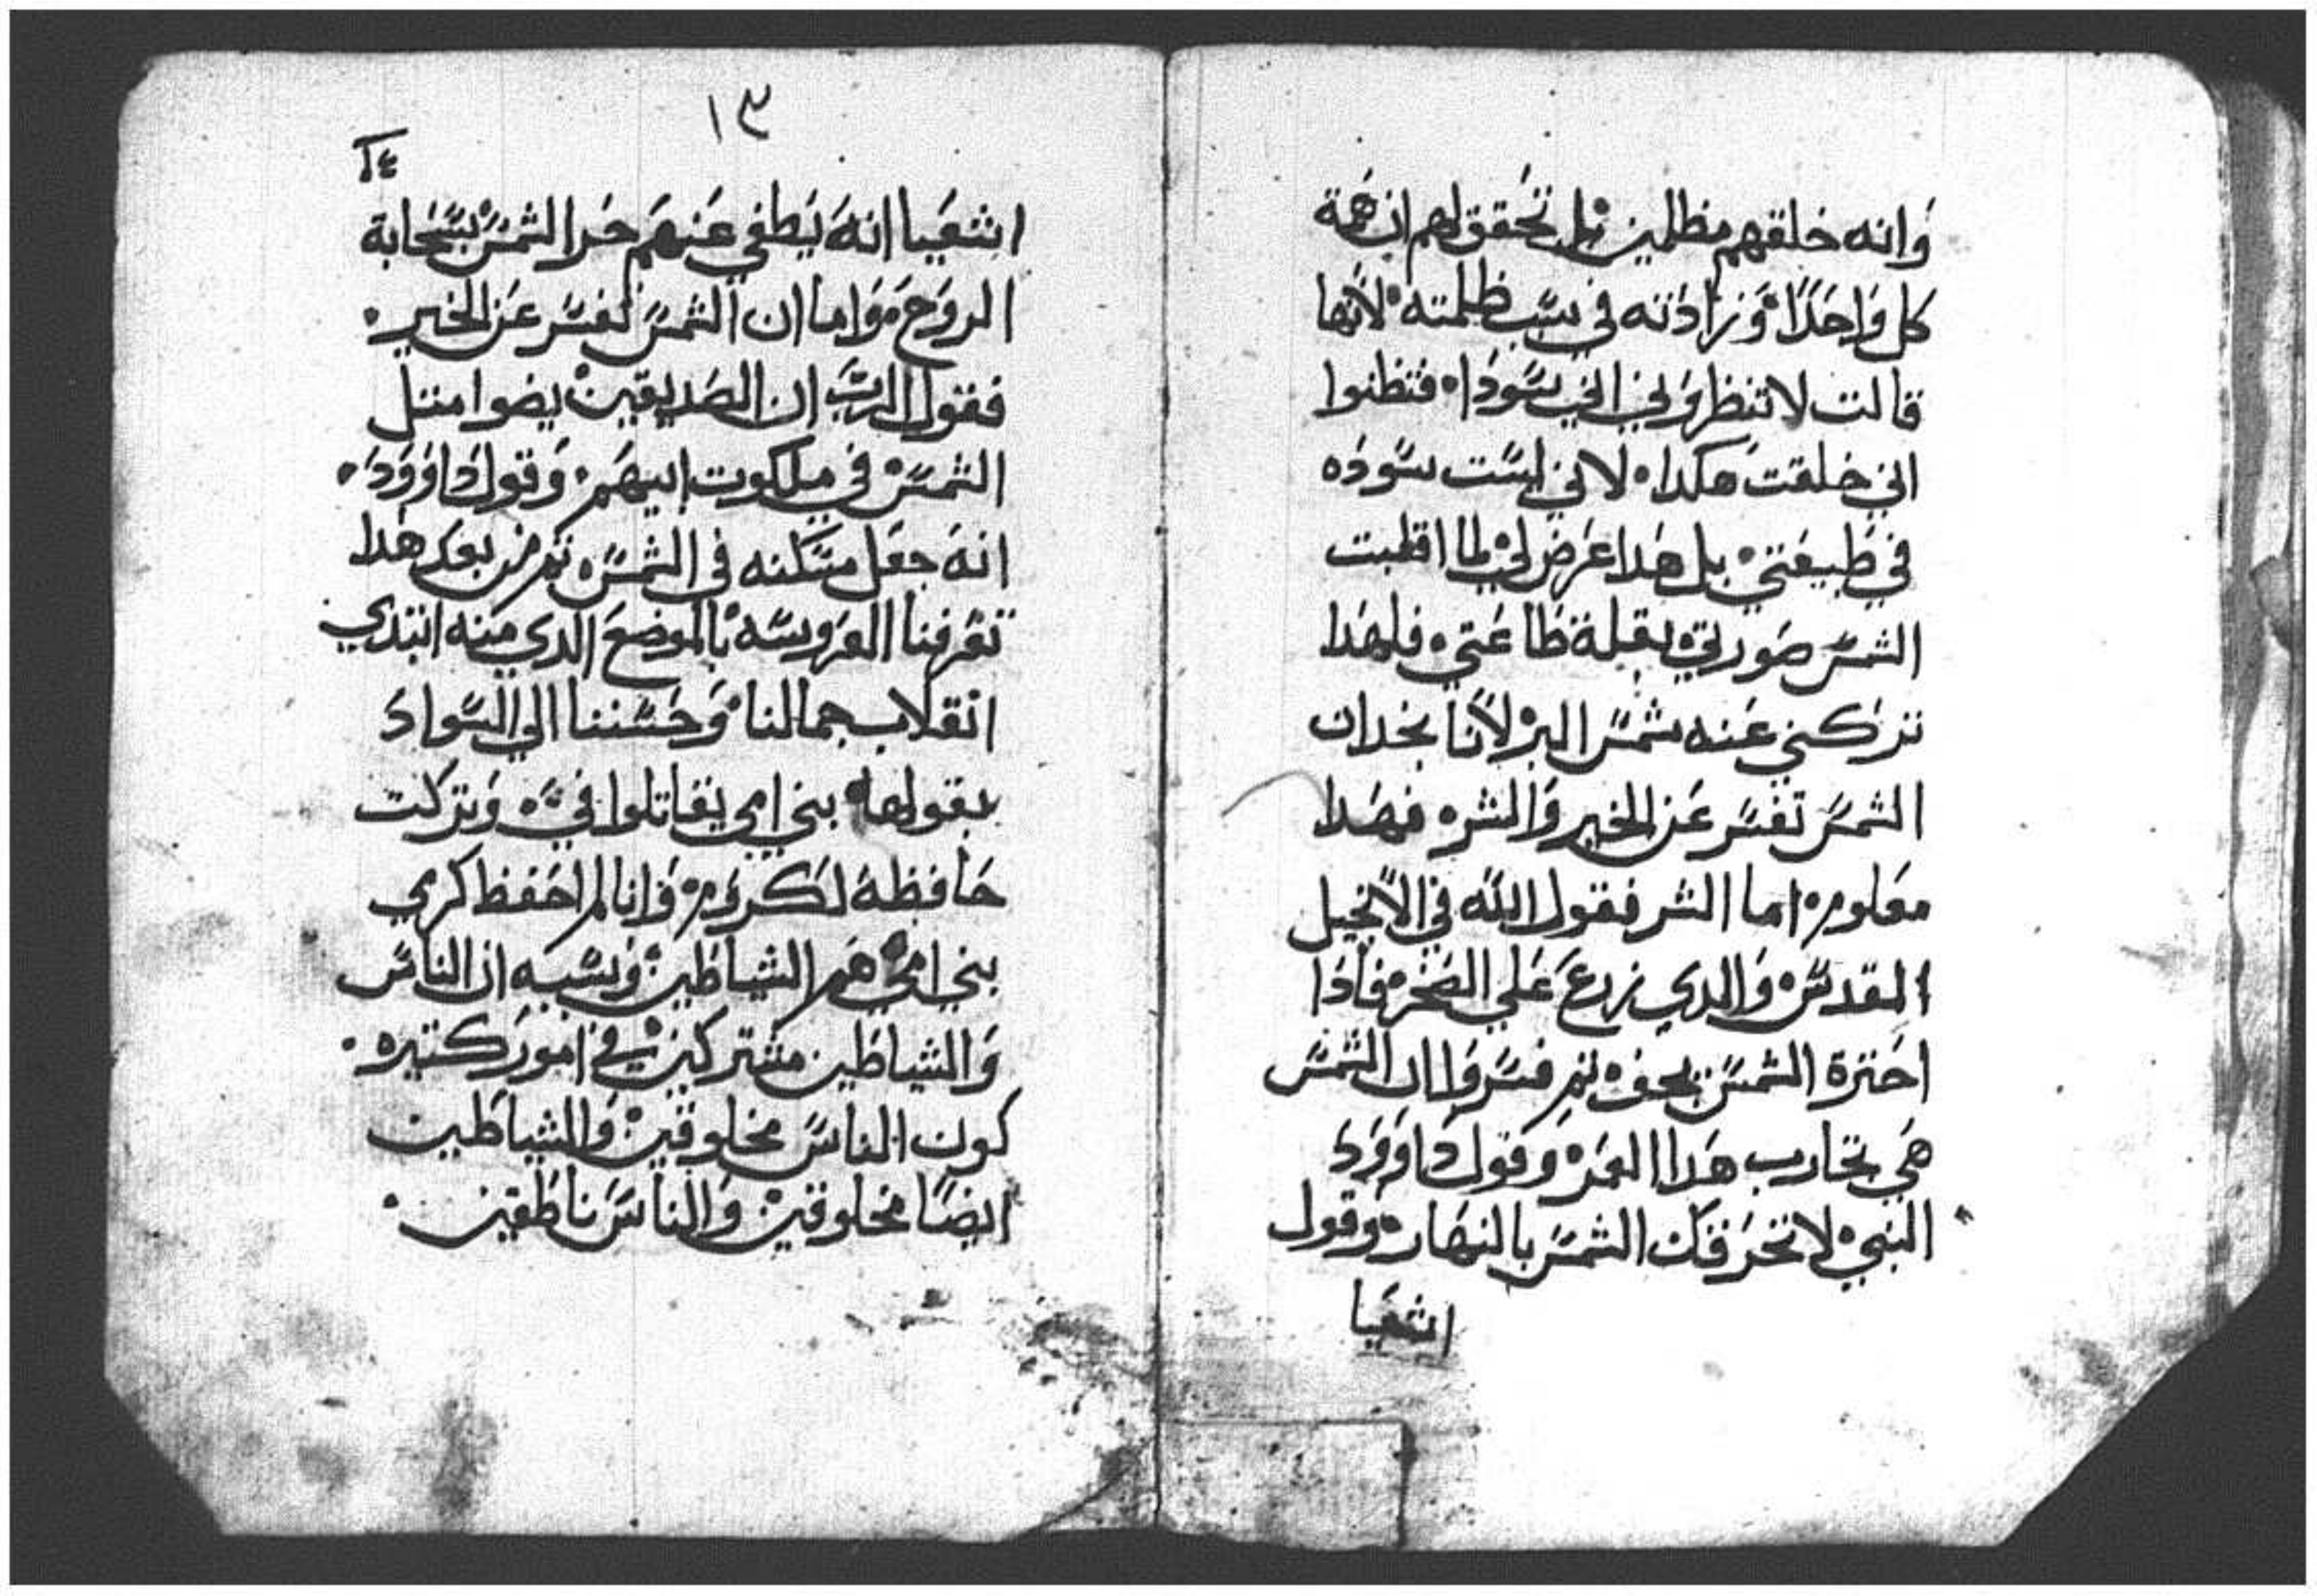 وَانه خلقهم مظلمين بل تحَقق لهم ان همَة
كل وَاحدًا وَزادَته في سَبب ظلمته لانها
قالت لا تنظروَني اني سَودَا فتظنوا
اني خلقت هكدا لاني لسَت سَودَه
في طبيعَتي بل هَدا عَرض لي لما اقلبت
الشمسَ صَورتي بقبلة طاعَتي فلهَدا
تركني عَنه شمسَ البر لاننا نجد ان
الشمسَ تفسَر عَن الخير وَالشر فهَدا
مَعلوم اما الشر فقول الله في الانجيل
المقدسَ وَالدي زرعَ عَلي الصَخره فادَا
احَترة الشمسَ يجف تم فسَر وَان الشمسَ
هَي تجارب هَدا العَمر وَقول دَاوَوَد
النبي لا تحَرقك الشمسَ بالنهَار وقول
اشعَيا
١٣
١٤
اشعَيا انهَ يَطفي عَنهَم حَر الشمسَ بسَحَابة
الروَح وَاما ان الشمسَ تفسَر عَن الخير
فقول الربَ ان الصَديقين يضوا متل
الشمسَ في ملكوت ابيهَم وَقول دَاوَوَد
انهَ جعَل مسَكنه في الشمسَ تم من بعَد هَدا
تعَرفنا العَروسَه بالموضعَ الدي منه ابتدي
انقلاب جمالنا وَحَسَننا الي السَوادَ
بقولها بني امي يقاتلوا فيَ وَتركت
حَافظة لكروَم وَانا لم احَفظ كرمي
بني امي هَم الشياطين وَسَببه ان الناسَ
وَالشياطين مشتركين في امورَ كتيره
كون الناسَ مخلوقين وَالشياطين
ايضَا مخلوقين وَالناسَ ناطقين